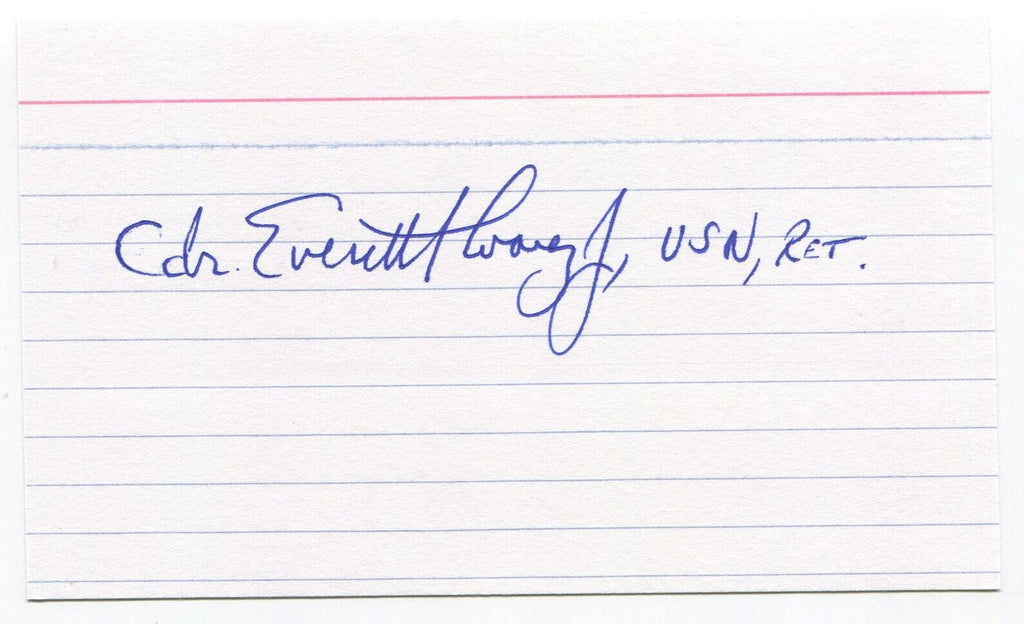 Cdr. Everett Alvarez Jr, USN, RET.